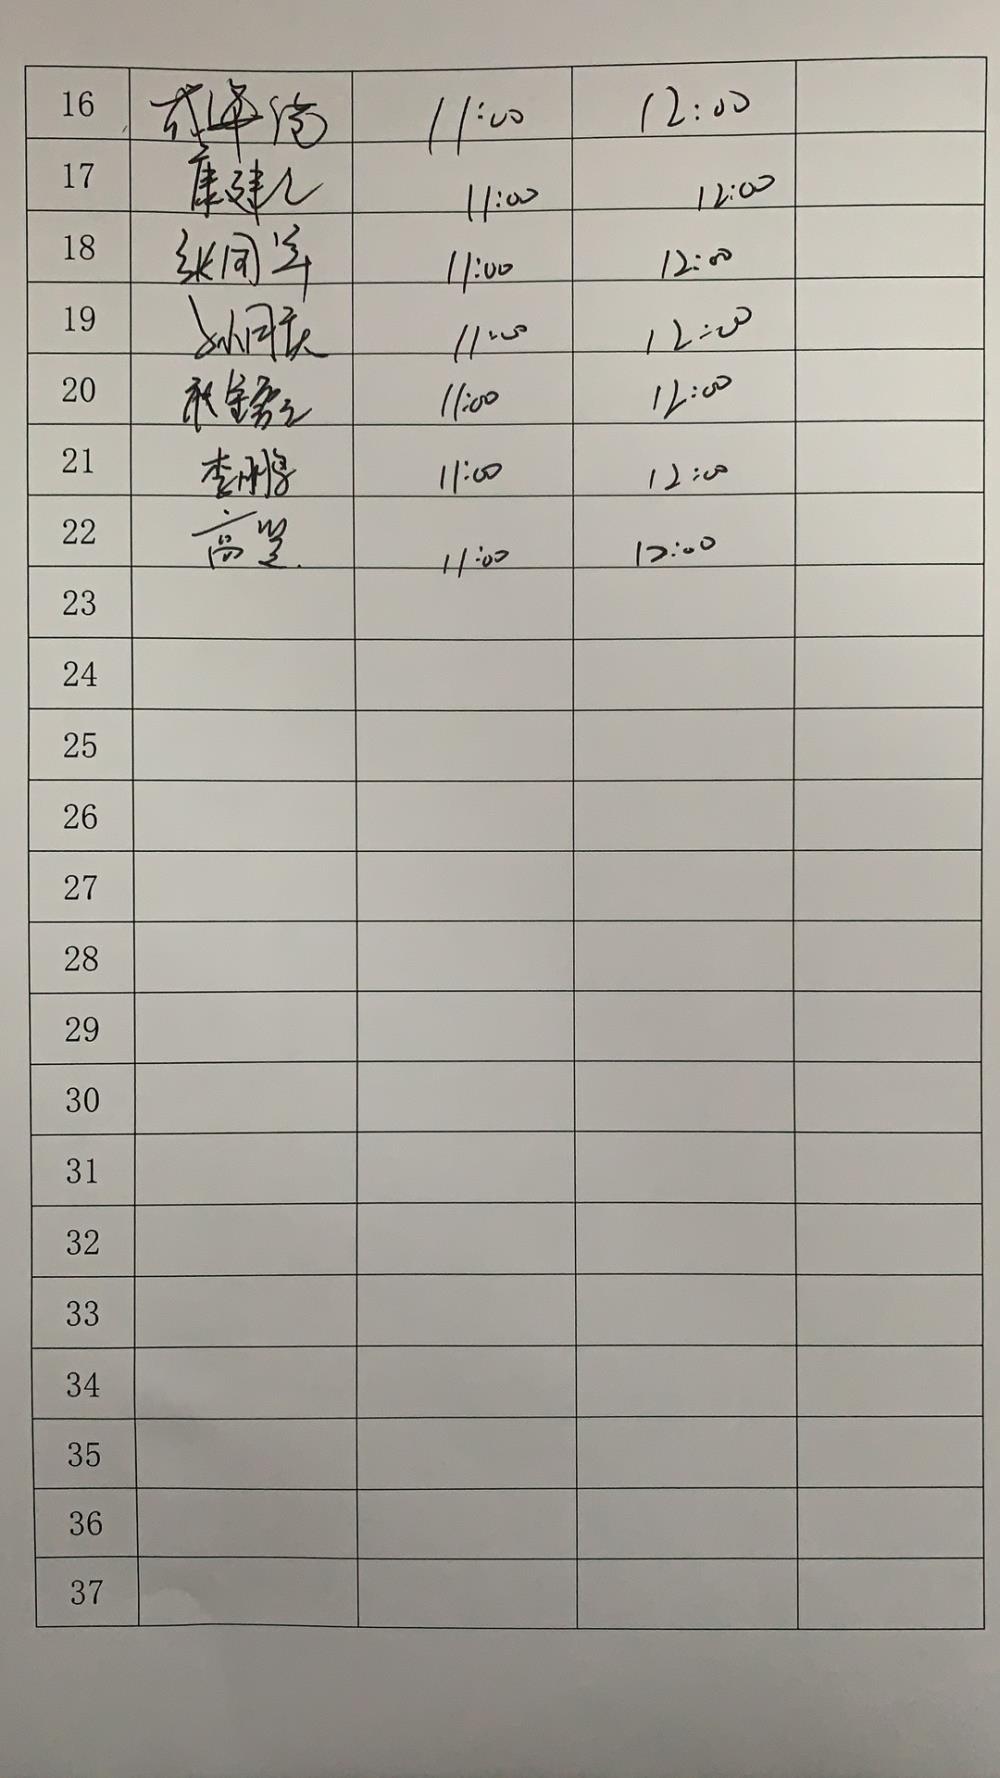 16 11:00 12:00
17 康建人 11:00 12:00
18 张同军 11:00 12:00
19 孙同庆 11:00 12:00
20 11:00 12:00
21 李鹏 11:00 12:00
22 高坚 11:00 12:00
23
24
25
26
27
28
29
30
31
32
33
34
35
36
37